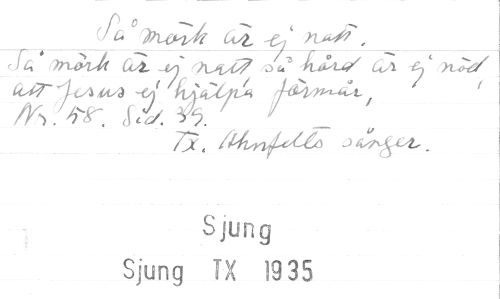 Så mörk är ej natt.
Så mörk är ej natt så hård är ej nöd,
att Jesus ej hjälpa förmår,
Nr. 58. Sid. 39.
Tx. Ahnfelts sånger.
Sjung
Sjung TX 1935